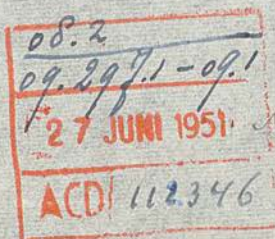 08.2
09.297.1-09.1
27 JUNI 1951
ACD 112346